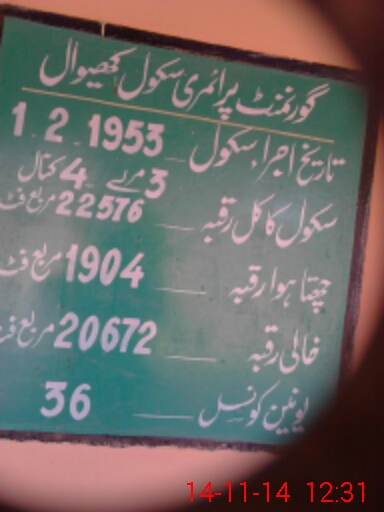 گورنمنٹ پرائمری سکول کھیوال
تاریخ اجراء سکول 1.2.1953
3 مرلے 4 کنال
سکول کا کل رقبہ 22576 مربع فٹ
چھتا ہوا رقبہ 1904 مربع فٹ
خالی رقبہ 20672 مربع فٹ
یونین کونسل 36
14-11-14 12:31